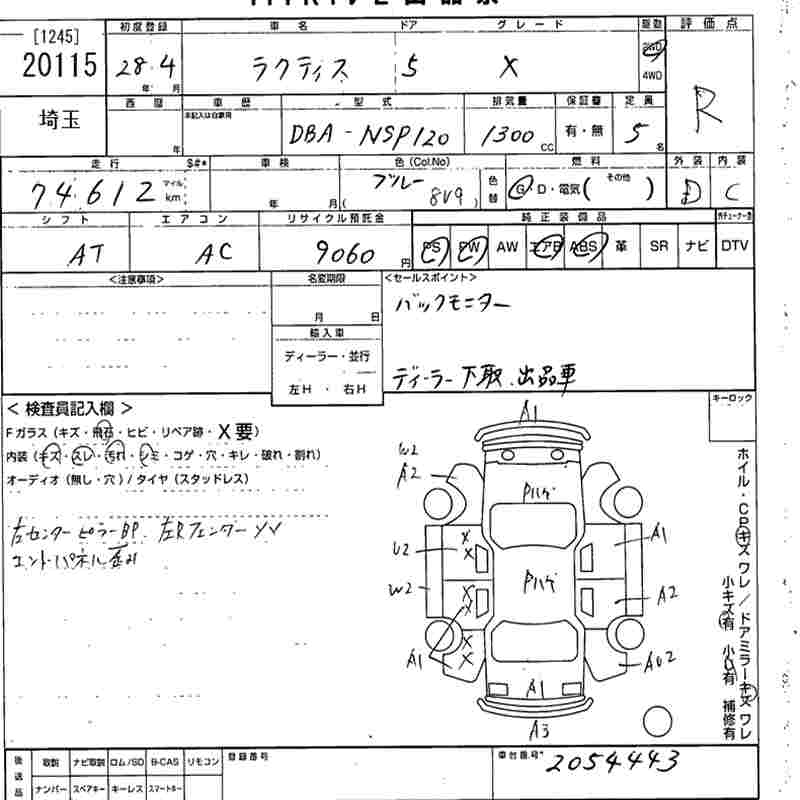 [1245]
20115
初度登録 車名 ドア グレード 駆動 評価点
28.4 ラクティス 5 X 2WD 4WD R
年 月
埼玉
西暦 車歴 型式 排気量 保証書 定員
本記入は自家用
年 DBA-NSP120 1300 cc 有・無 5 名
走行 S#* 車検 色(Col.No) 燃料 外装 内装
74612 マイル km 年 月 ブルー (8V9) 色替 G・D・電気( その他 ) D C
シフト エアコン リサイクル預託金 純正装備品
AT AC 9060 円 PS PW AW エアB ABS 革 SR ナビ DTV
<注意事項> 名変期限 <セールスポイント>
月 日 バックモニター
輸入車
ディーラー・並行
左H・右H ディーラー下取 出品車
<検査員記入欄> キーロック
Fガラス(キズ・飛石・ヒビ・リペア跡・X要)
内装(キズ・スレ・汚れ・シミ・コゲ・穴・キレ・破れ・割れ)
オーディオ(無し・穴)/タイヤ(スタッドレス)
左センターピラーBP. 左Rフェンダー
エンドパネル歪み
A1
W2
A2
Pハゲ
U2
A1
W2
Pハゲ
A2
A1
AU2
A1
A3
ホイル・CPキズワレ/ドアミラーキズワレ
小キズ有 小U有 補修有
後送品 取説 ナビ取説 ロム/SD B-CAS リモコン 登録番号 車台番号* 2054443
ナンバー スペアキー キーレス スマートキー